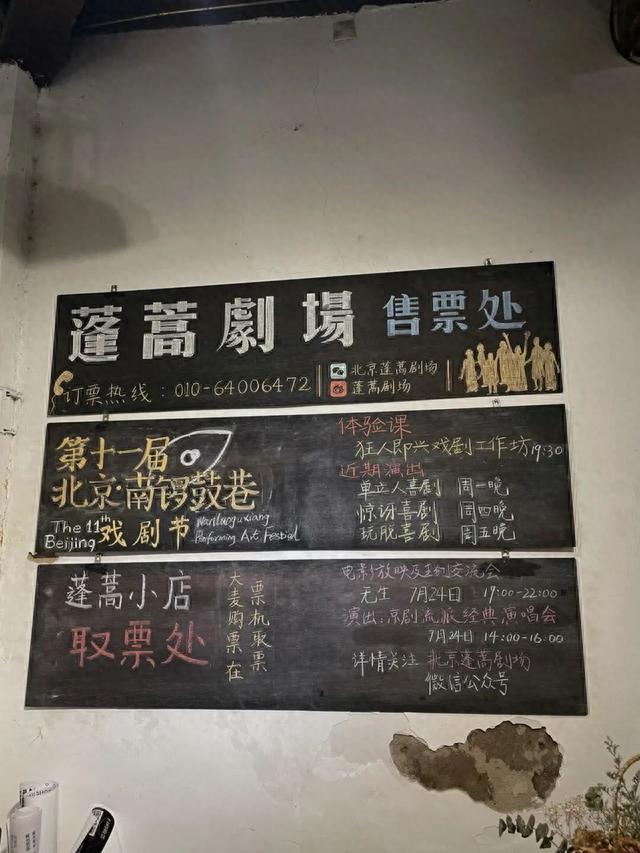 蓬蒿劇場 售票处
订票热线：010-64006472
北京蓬蒿剧场
蓬蒿剧场
第十一届
北京·南锣鼓巷
The 11th 戏剧节 Nanluoguxiang
Beijing Performing Art Festival
体验课
狂人即兴戏剧工作坊 19:30
近期演出
单立人喜剧 周一晚
惊讶喜剧 周四晚
玩脱喜剧 周五晚
蓬蒿小店
取票处
大麦购票在
票机取票
电影放映及互动交流会
无生 7月24日 19:00-22:00
演出:京剧流派经典演唱会
7月24日 14:00-16:00
详情关注 北京蓬蒿剧场
微信公众号